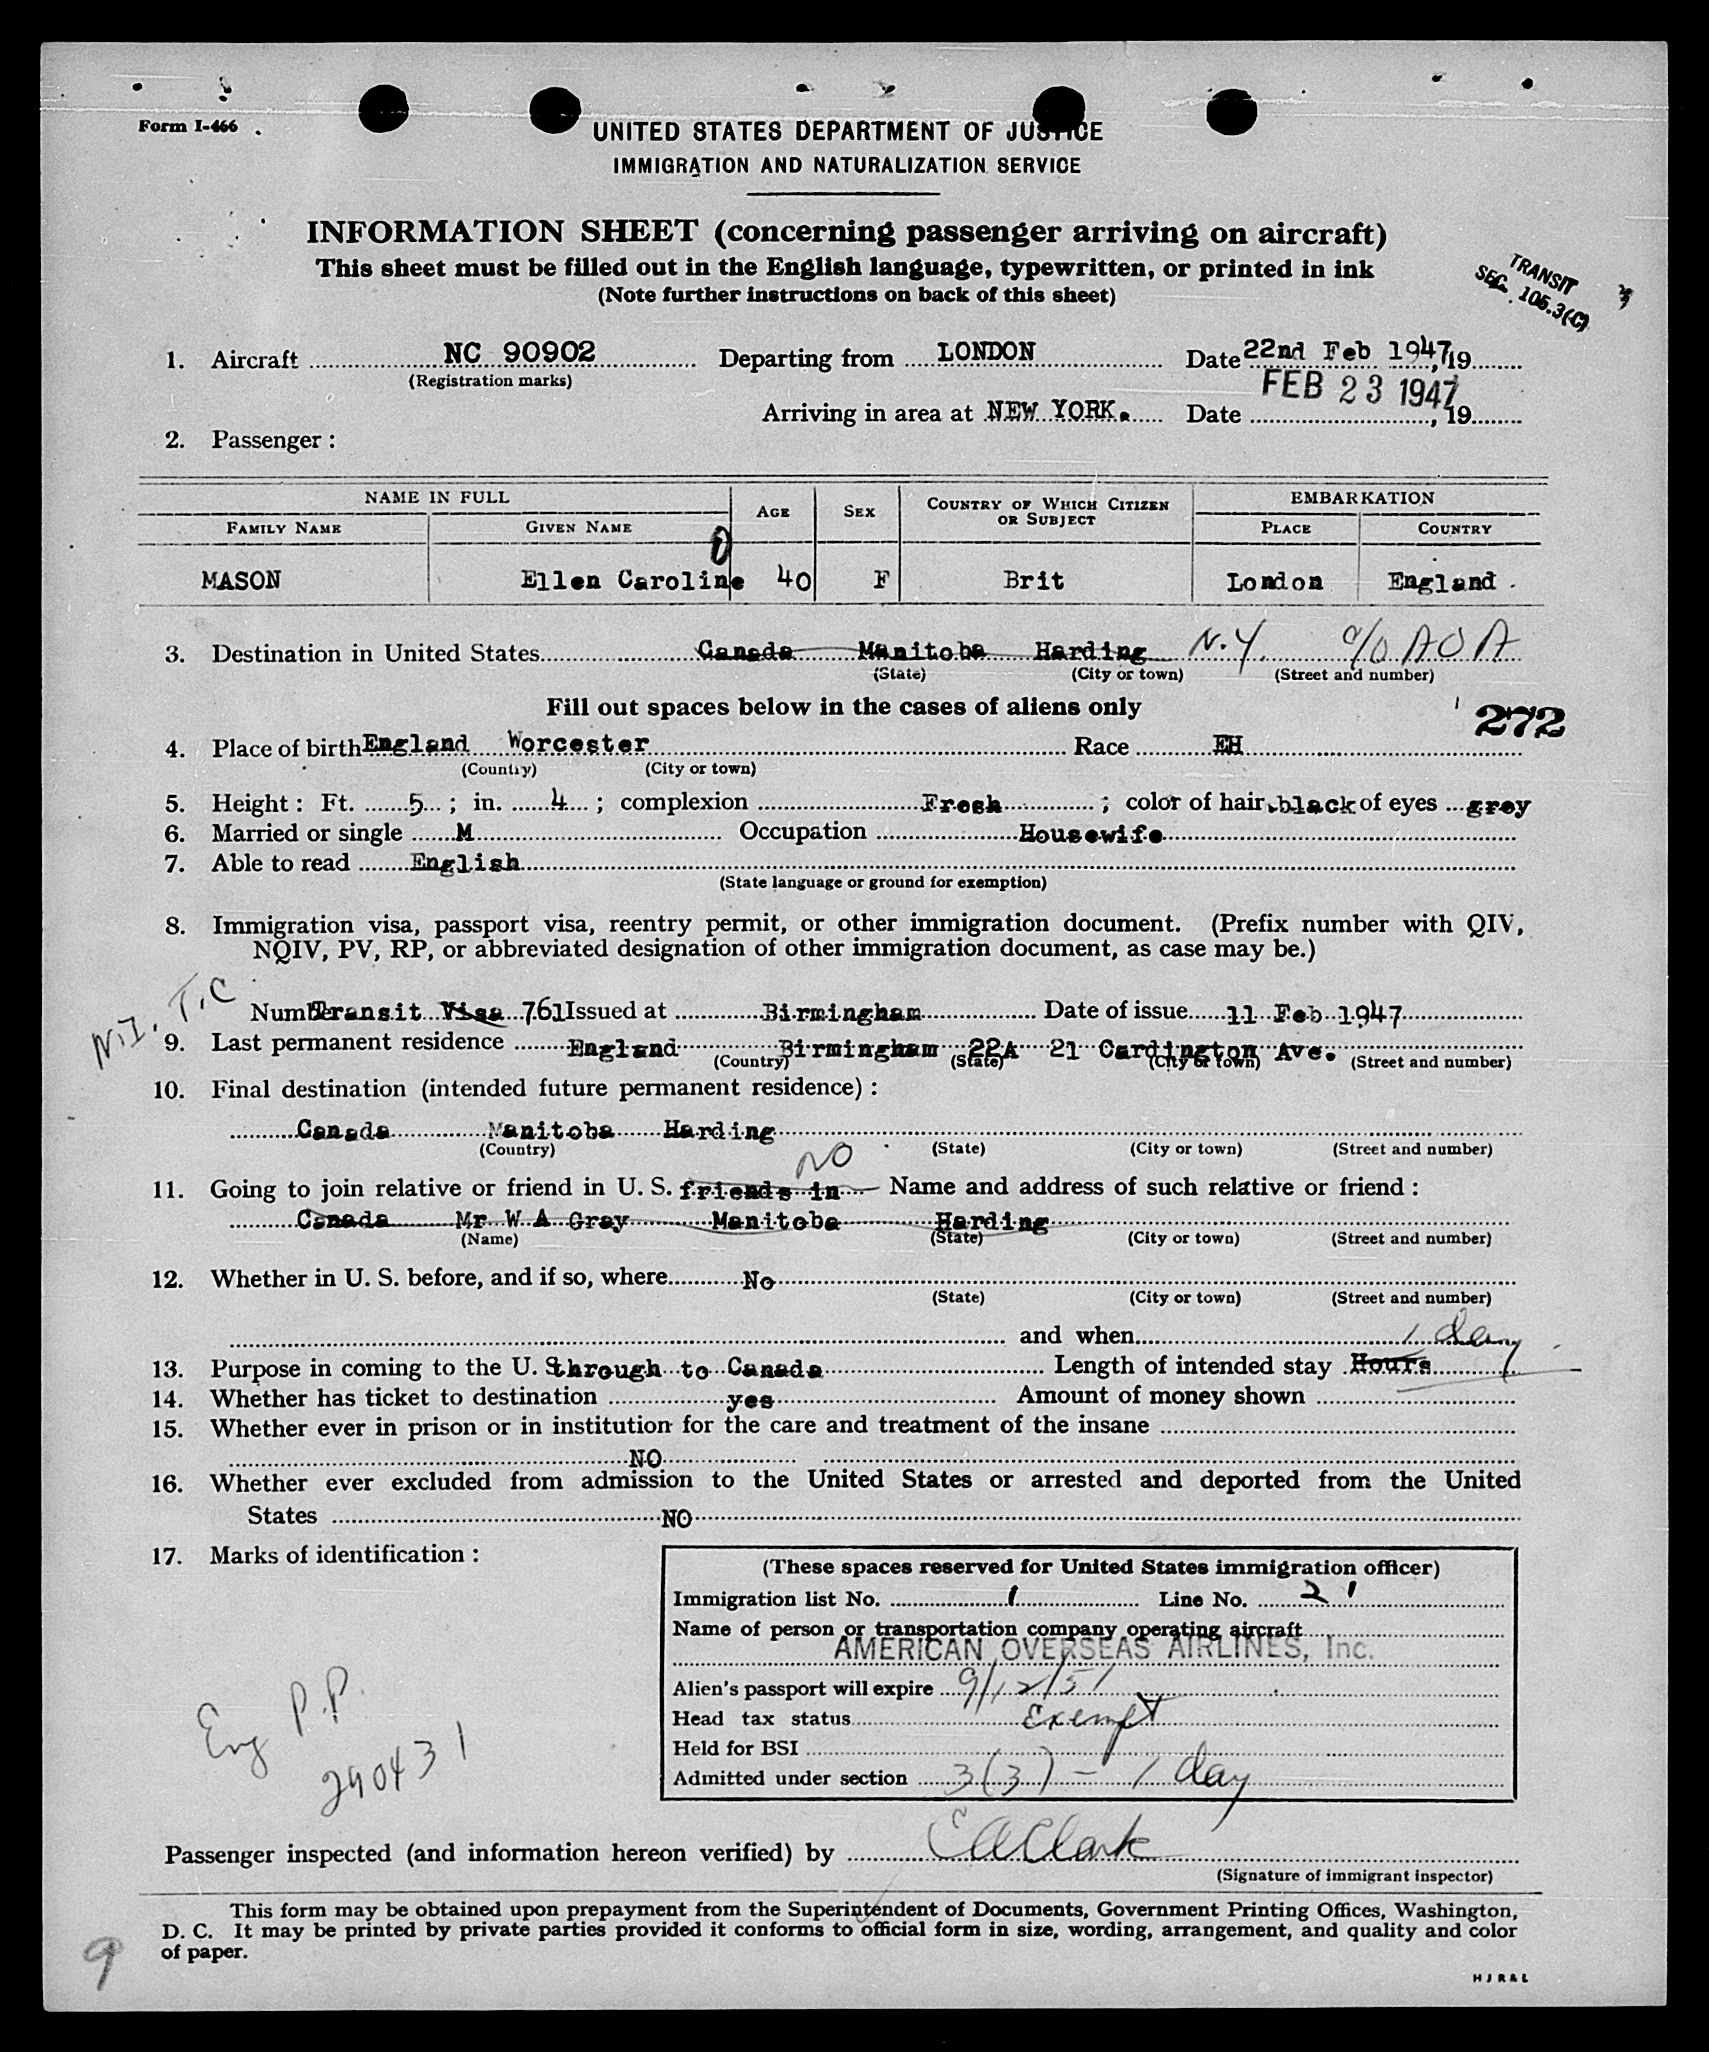 Form I-466
UNITED STATES DEPARTMENT OF JUSTICE
IMMIGRATION AND NATURALIZATION SERVICE
INFORMATION SHEET (concerning passenger arriving on aircraft)
This sheet must be filled out in the English language, typewritten, or printed in ink
(Note further instructions on back of this sheet)
TRANSIT
SEC. 105.3(C)
1. Aircraft NC 90902 Departing from LONDON Date 22nd Feb 1947, 19
(Registration marks)
FEB 23 1947
Arriving in area at NEW YORK. Date , 19
2. Passenger :
NAME IN FULL AGE SEX COUNTRY OF WHICH CITIZEN OR SUBJECT EMBARKATION
FAMILY NAME GIVEN NAME PLACE COUNTRY
MASON Ellen Caroline 40 F Brit London England
3. Destination in United States Canada Manitoba Harding N.Y. c/o AOA
(State) (City or town) (Street and number)
Fill out spaces below in the cases of aliens only
272
4. Place of birth England Worcester Race EH
(Country) (City or town)
5. Height : Ft. 5 ; in. 4 ; complexion Fresh ; color of hair black of eyes grey
6. Married or single M Occupation Housewife
7. Able to read English
(State language or ground for exemption)
8. Immigration visa, passport visa, reentry permit, or other immigration document. (Prefix number with QIV,
NQIV, PV, RP, or abbreviated designation of other immigration document, as case may be.)
N.I. T.C
Number Transit Visa 761 Issued at Birmingham Date of issue 11 Feb 1947
9. Last permanent residence England Birmingham 22A 21 Cardington Ave.
(Country) (State) (City or town) (Street and number)
10. Final destination (intended future permanent residence) :
Canada Manitoba Harding
(Country) (State) (City or town) (Street and number)
NO
11. Going to join relative or friend in U. S. friends in Name and address of such relative or friend :
Canada Mr W A Gray Manitoba Harding
(Name) (State) (City or town) (Street and number)
12. Whether in U. S. before, and if so, where No
(State) (City or town) (Street and number)
and when
1 day
13. Purpose in coming to the U. S. through to Canada Length of intended stay Hours
14. Whether has ticket to destination yes Amount of money shown
15. Whether ever in prison or in institution for the care and treatment of the insane
NO
16. Whether ever excluded from admission to the United States or arrested and deported from the United
States NO
17. Marks of identification :
(These spaces reserved for United States immigration officer)
Immigration list No. 1 Line No. 21
Name of person or transportation company operating aircraft
AMERICAN OVERSEAS AIRLINES, Inc.
Alien's passport will expire 9/12/51
Head tax status Exempt
Held for BSI
Admitted under section 3(3) - 1 day
Eng P.P.
290431
Passenger inspected (and information hereon verified) by E A Clark
(Signature of immigrant inspector)
This form may be obtained upon prepayment from the Superintendent of Documents, Government Printing Offices, Washington,
D. C. It may be printed by private parties provided it conforms to official form in size, wording, arrangement, and quality and color
of paper.
9
H J R & L